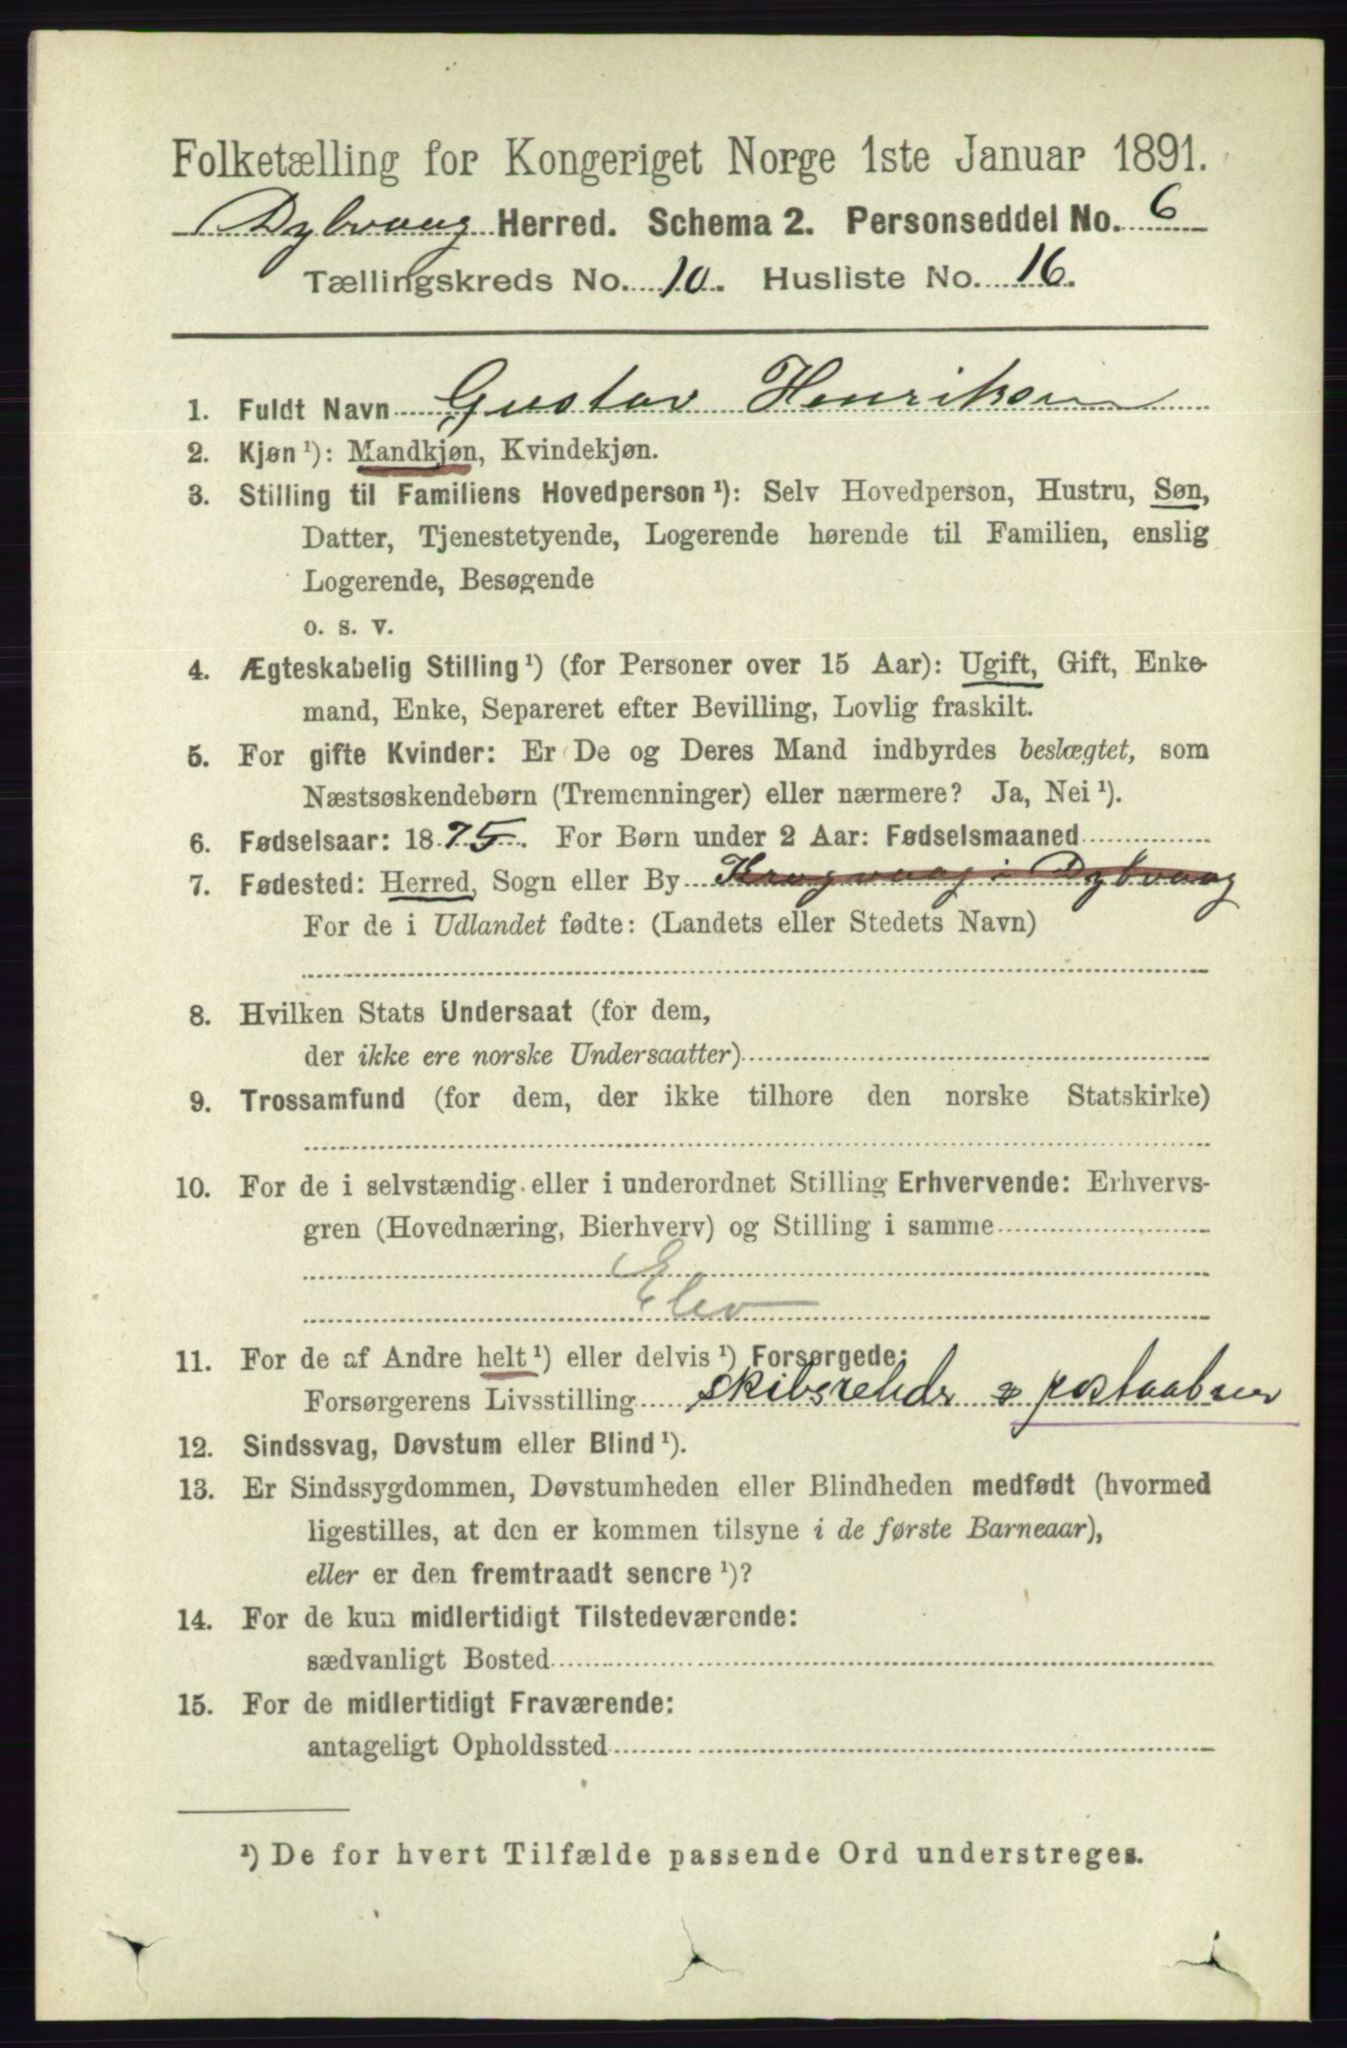 Folketælling for Kongeriget Norge 1ste Januar 1891.
Dybvaag Herred. Schema 2. Personseddel No. 6
Tællingskreds No. 10. Husliste No. 16.
1. Fuldt Navn Gustav Henriksen
2. Kjøn ¹): Mandkjøn, Kvindekjøn.
3. Stilling til Familiens Hovedperson ¹): Selv Hovedperson, Hustru, Søn,
Datter, Tjenestetyende, Logerende hørende til Familien, enslig
Logerende, Besøgende
o. s. v.
4. Ægteskabelig Stilling ¹) (for Personer over 15 Aar): Ugift, Gift, Enke-
mand, Enke, Separeret efter Bevilling, Lovlig fraskilt.
5. For gifte Kvinder: Er De og Deres Mand indbyrdes beslægtet, som
Næstsøskendebørn (Tremenninger) eller nærmere? Ja, Nei ¹).
6. Fødselsaar: 1875. For Børn under 2 Aar: Fødselsmaaned
7. Fødested: Herred, Sogn eller By Krogvaag i Dybvaag
For de i Udlandet fødte: (Landets eller Stedets Navn)
8. Hvilken Stats Undersaat (for dem,
der ikke ere norske Undersaatter)
9. Trossamfund (for dem, der ikke tilhøre den norske Statskirke)
10. For de i selvstændig eller i underordnet Stilling Erhvervende: Erhvervs-
gren (Hovednæring, Bierhverv) og Stilling i samme
Elev
11. For de af Andre helt ¹) eller delvis ¹) Forsørgede:
Forsørgerens Livsstilling skibsrehdr & postaabner
12. Sindssvag, Døvstum eller Blind ¹).
13. Er Sindssygdommen, Døvstumheden eller Blindheden medfødt (hvormed
ligestilles, at den er kommen tilsyne i de første Barneaar),
eller er den fremtraadt senere ¹)?
14. For de kun midlertidigt Tilstedeværende:
sædvanligt Bosted
15. For de midlertidigt Fraværende:
antageligt Opholdssted
¹) De for hvert Tilfælde passende Ord understreges.